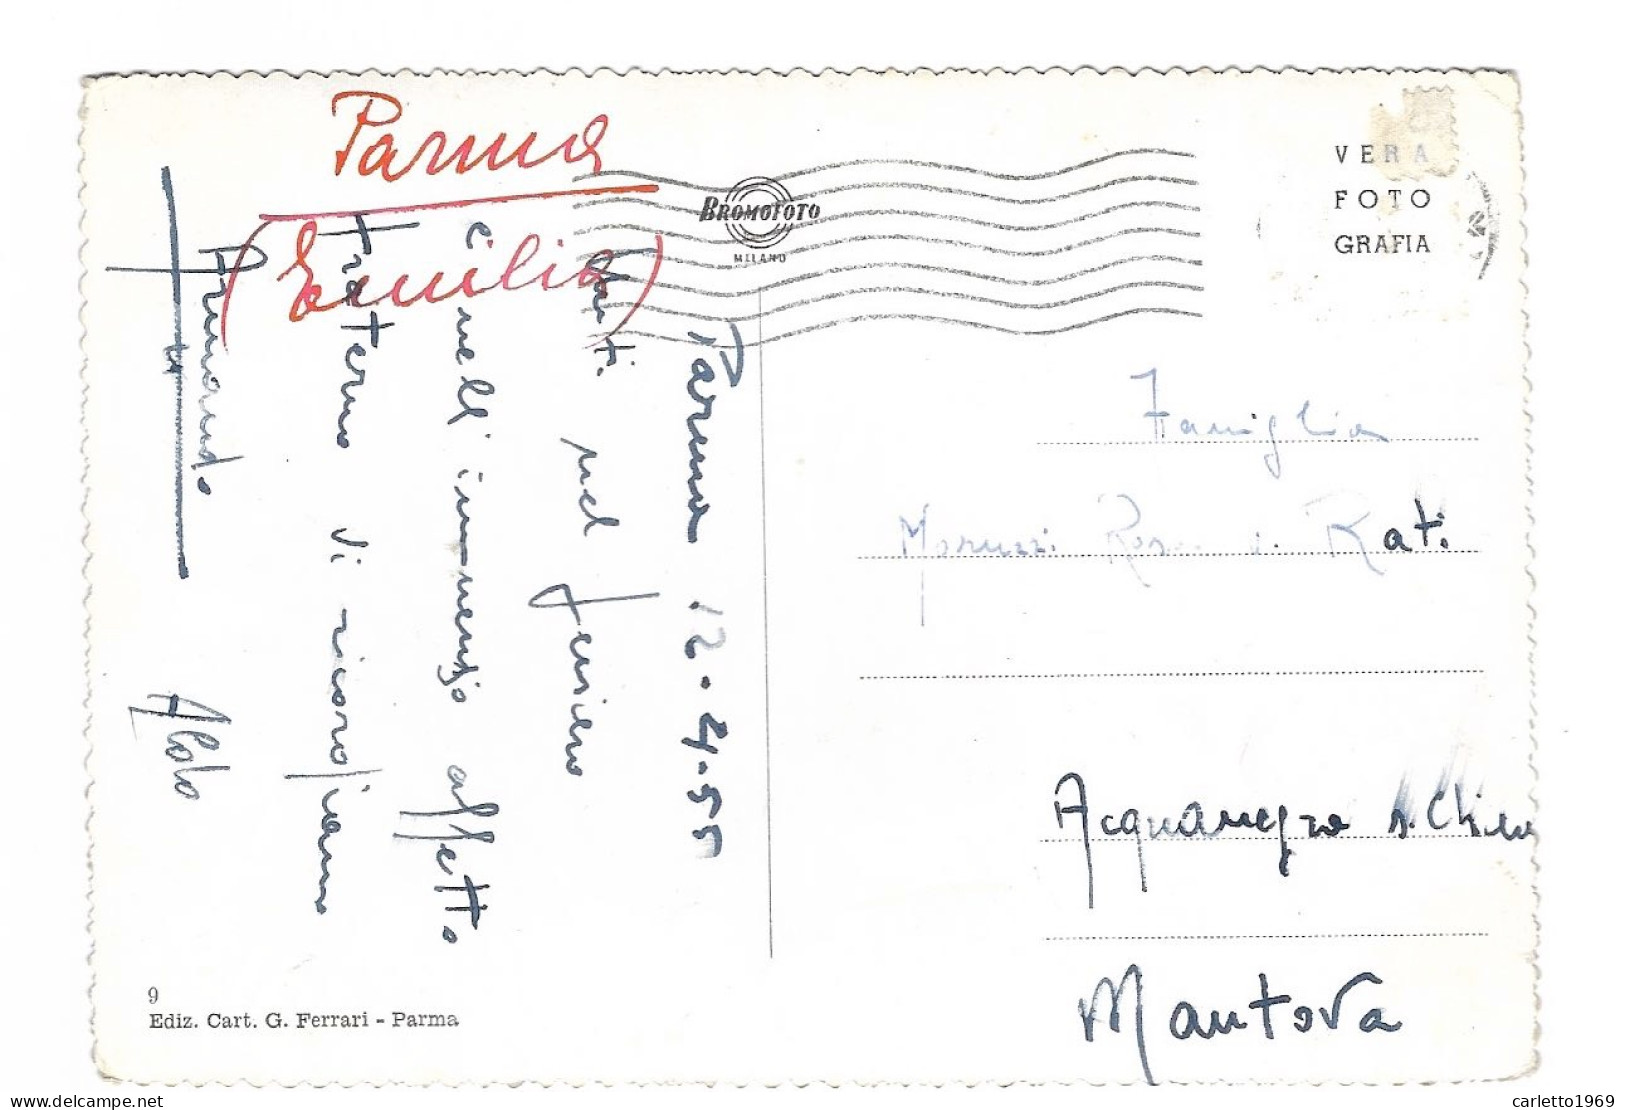 Parma
(Emilia)
BROMOFOTO
MILANO
VERA
FOTO
GRAFIA
Parma 12-4-55
nel pensiero
e nell'immenso affetto
Fraterno Vi ricordiamo
Armando Aldo
Famiglia
Moruzzi Rosa Rati
Acquanegra s. Chiese
Mantova
9
Ediz. Cart. G. Ferrari - Parma
delcampe.net
carletto1969